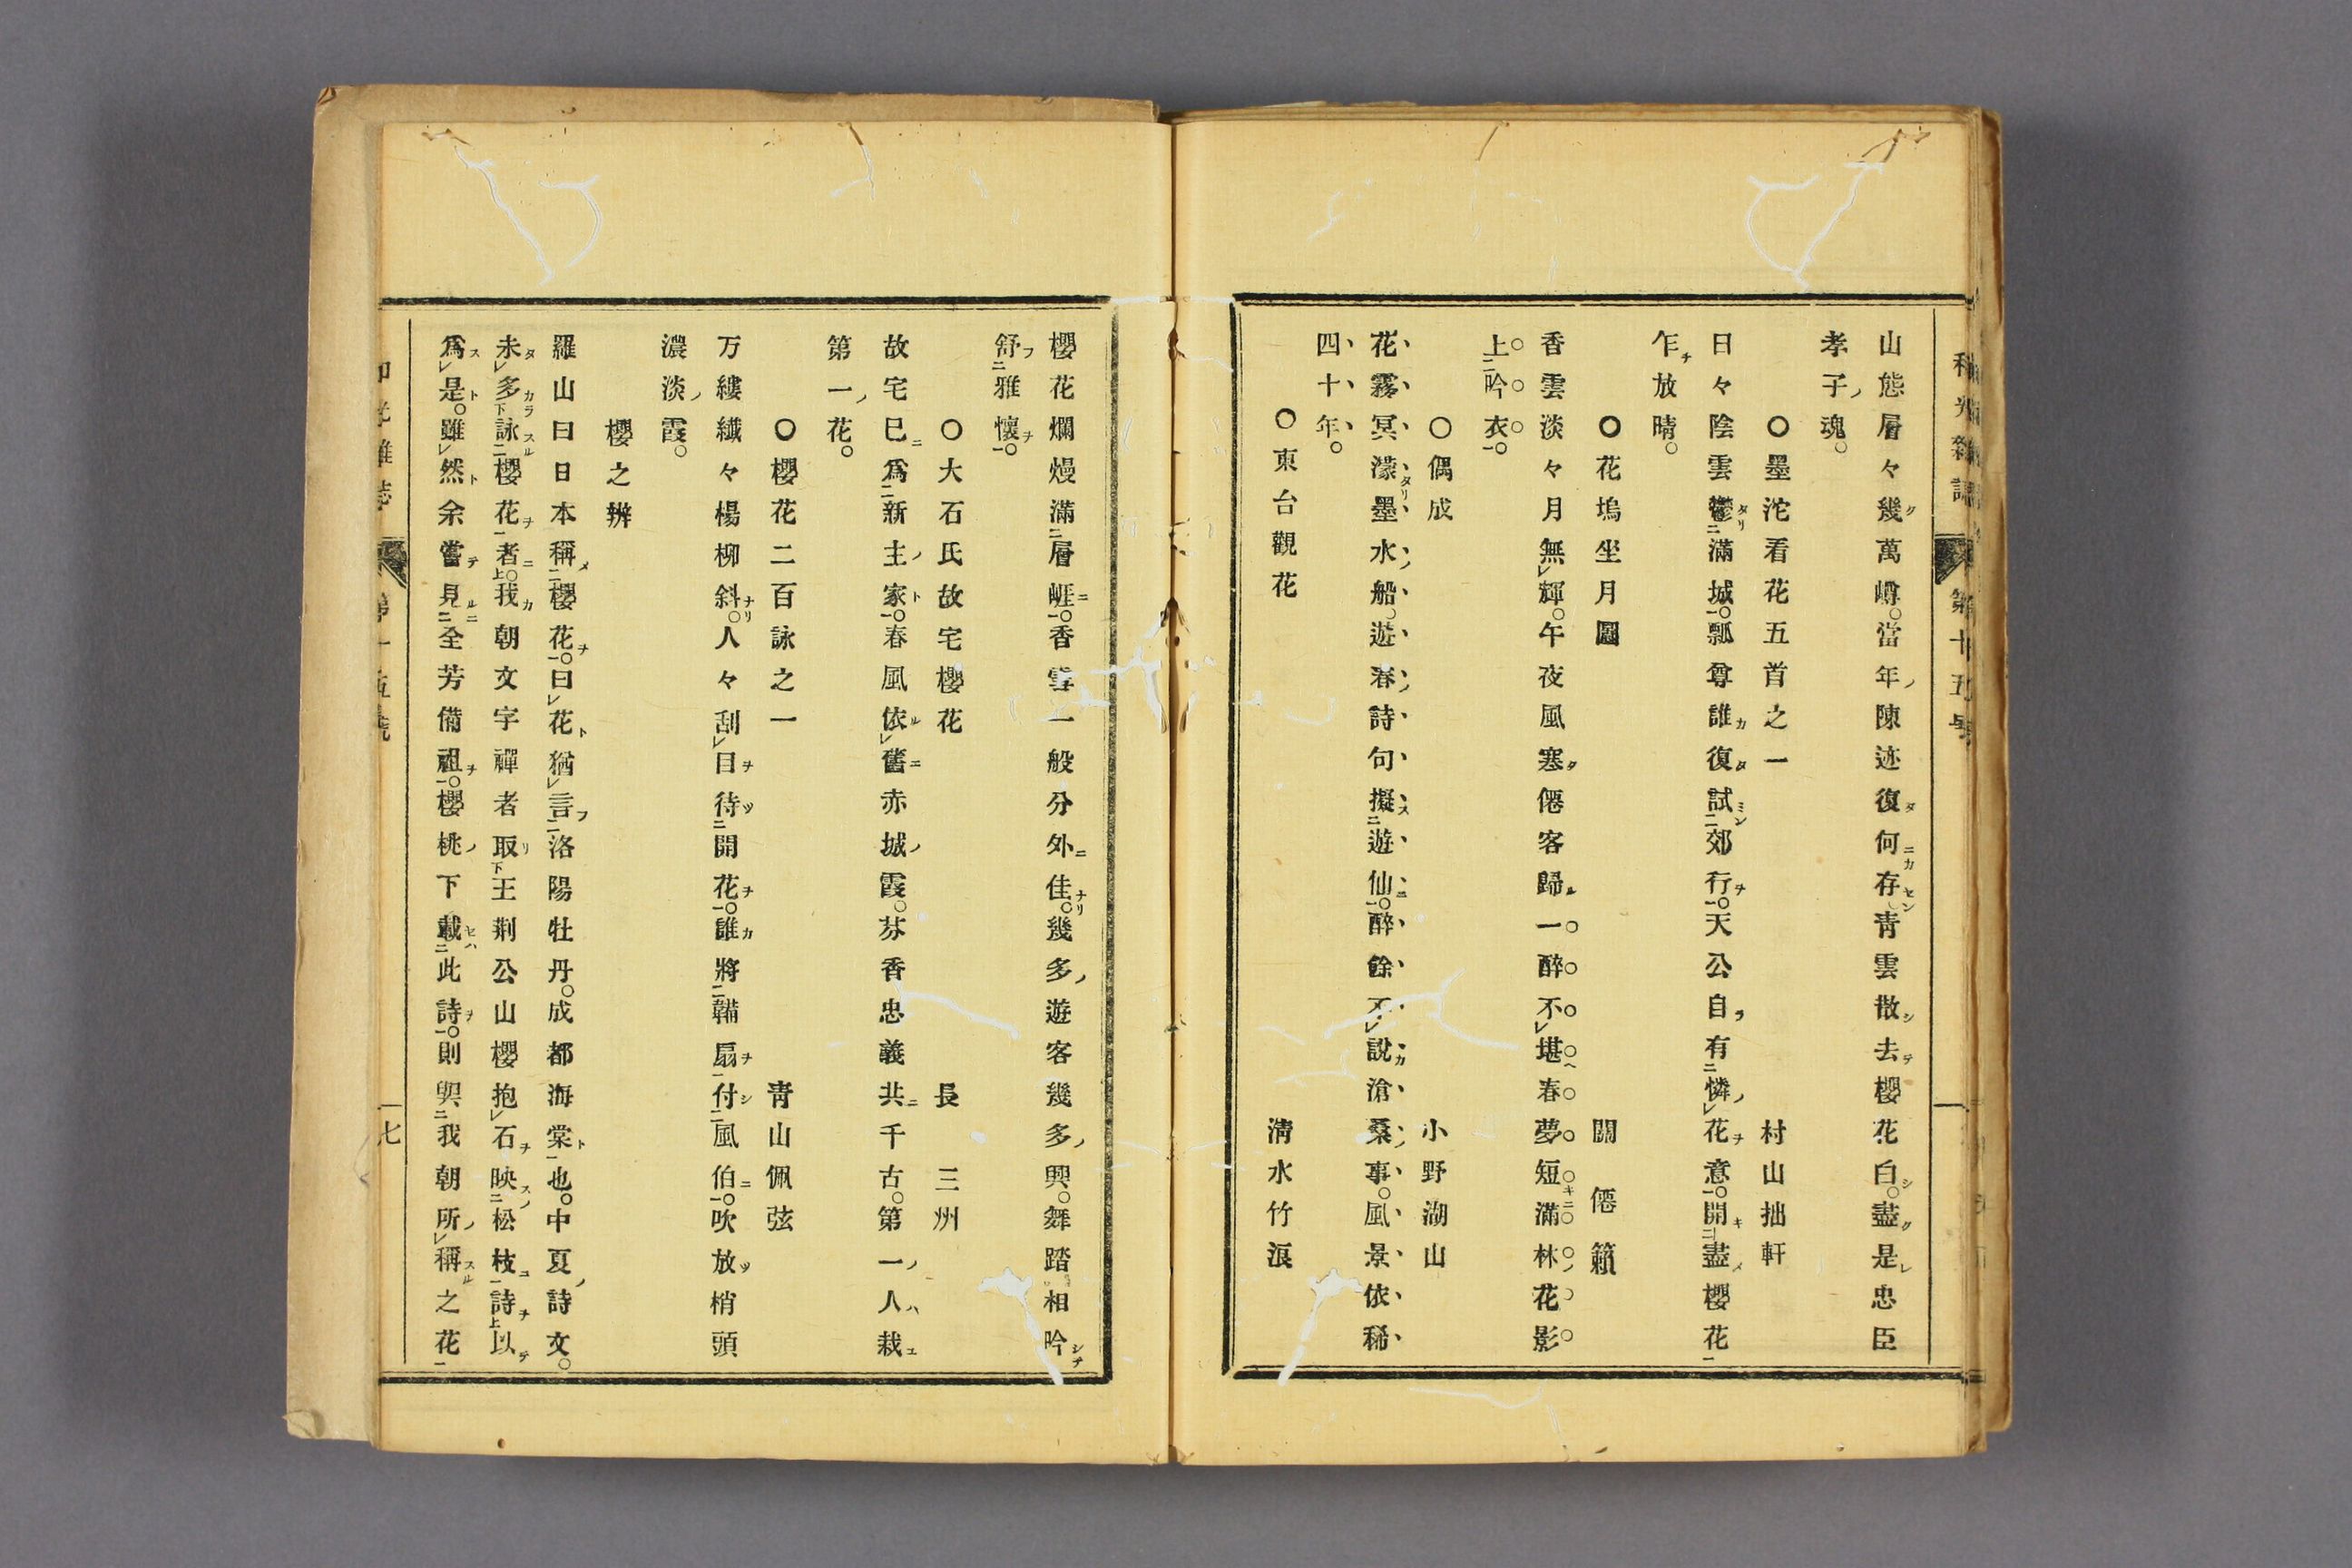 山態層々幾萬嶂。當年陳迹復何存。靑雲散去櫻花白。盡是忠臣
孝子魂。
〇墨沱看花五首之一 村山拙軒
日々陰雲鬱滿城。瓢尊誰復試郊行。天公自有憐花意。開盡櫻花
乍放晴。
〇花塢坐月圖 關僊籟
香雲淡々月無輝。午夜風寒僊客歸。一醉不堪春夢短。滿林花影
上吟衣。
〇偶成 小野湖山
花霧冥濛墨水船。遊春詩句擬遊仙。醉餘不說滄桑事。風景依稀
四十年。
〇東台觀花 淸水竹浪
櫻花爛熳滿層崕。香雲一般分外佳。幾多遊客幾多興。舞踏相吟
舒雅懷。
〇大石氏故宅櫻花 長三州
故宅已爲新主家。春風依舊赤城霞。芬香忠義共千古。第一人栽
第一花。
〇櫻花二百詠之一 靑山佩弦
万縷繊々楊柳斜。人々刮目待開花。誰將鞴扇付風伯。吹放梢頭
濃淡霞。
櫻之辨
羅山曰日本稱櫻花。曰花猶言洛陽牡丹。成都海棠也。中夏詩文。
未多詠櫻花者。我朝文字禪者取王荆公山櫻抱石映松枝詩以
爲是。雖然余嘗見全芳備祖。櫻桃下載此詩。則與我朝所稱之花
第十五號
一七